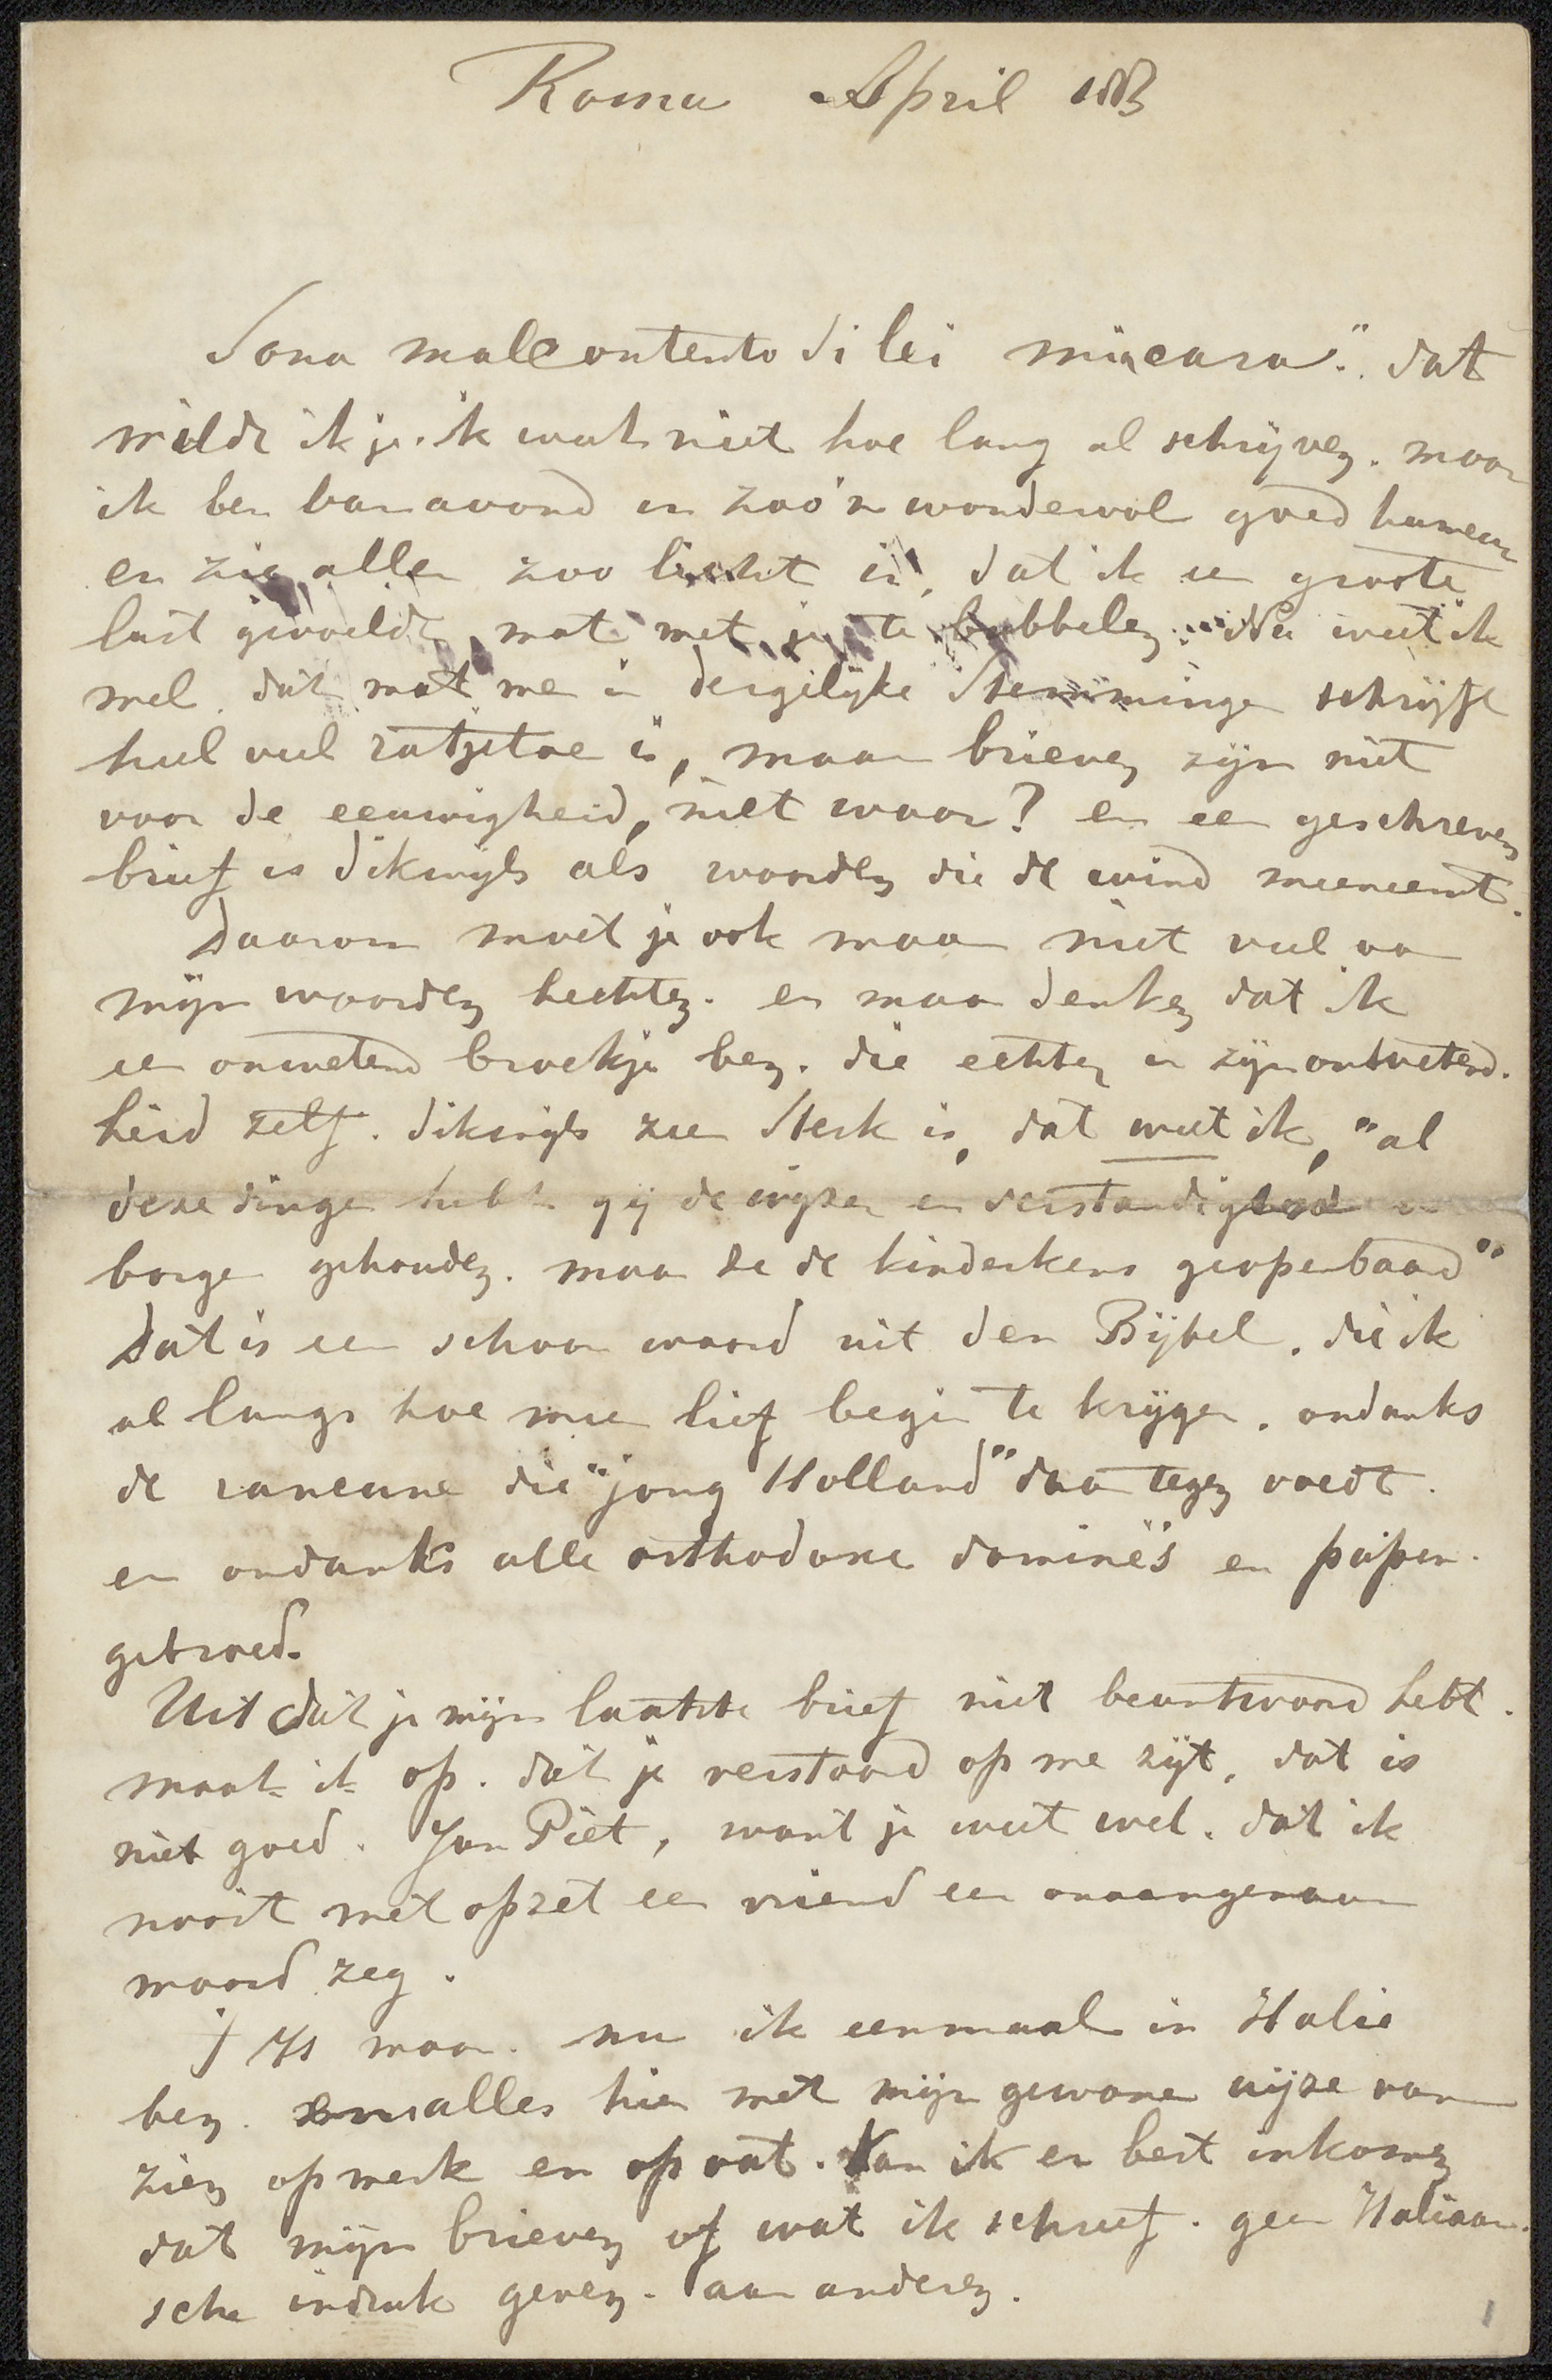 Roma April 1883
Sono malcontento di lei mia cara". dat
wilde ik je. ik weet niet hoe lang al schrijven. maar
ik ben van avond in zoo'n wondervol goed humeur
en zie alles zoo licht in, dat ik een groote
lust gevoelde wat met je te babbelen. Nu weet ik
wel. dat wat men in dergelijke stemmingen schrijft
heel veel ratjetoe is, maar brieven zijn niet
voor de eeuwigheid, niet waar? en een geschreven
brief is dikwijls als woorden die de wind meeneemt.
Daarom moet je ook maar niet veel aan
mijn woorden hechten. en maar denken dat ik
een onwetend broekje ben. die echter in zijn onwetend-
heid zelf. dikwijls zeer sterk is, dat weet ik, "al
deze dingen hebt gij de wijzen en verstandigen ver
borgen gehouden. maar ze de kinderkens geopenbaard"
Dat is een schoon woord uit den Bijbel. die ik
al langs hoe meer lief begin te krijgen. ondanks
de rancune die "jong Holland" daar tegen voedt.
en ondanks alle orthodoxe dominé's en papen-
gebroed.
Uit dat je mijn laatste brief niet beantwoord hebt.
maak ik op. dat je verstoord op me zijt, dat is
niet goed. Jan Piet, want je weet wel. dat ik
nooit met opzet een vriend een onaangenaam
woord zeg.
't Is waar. nu ik eenmaal in Italie
ben. alles hier met mijn gewone wijze van
zien opmerk en opvat. kan ik er best inkomen
dat mijn brieven of wat ik schreef. geen Italiaan-
sche indruk geven. aan anderen.
1